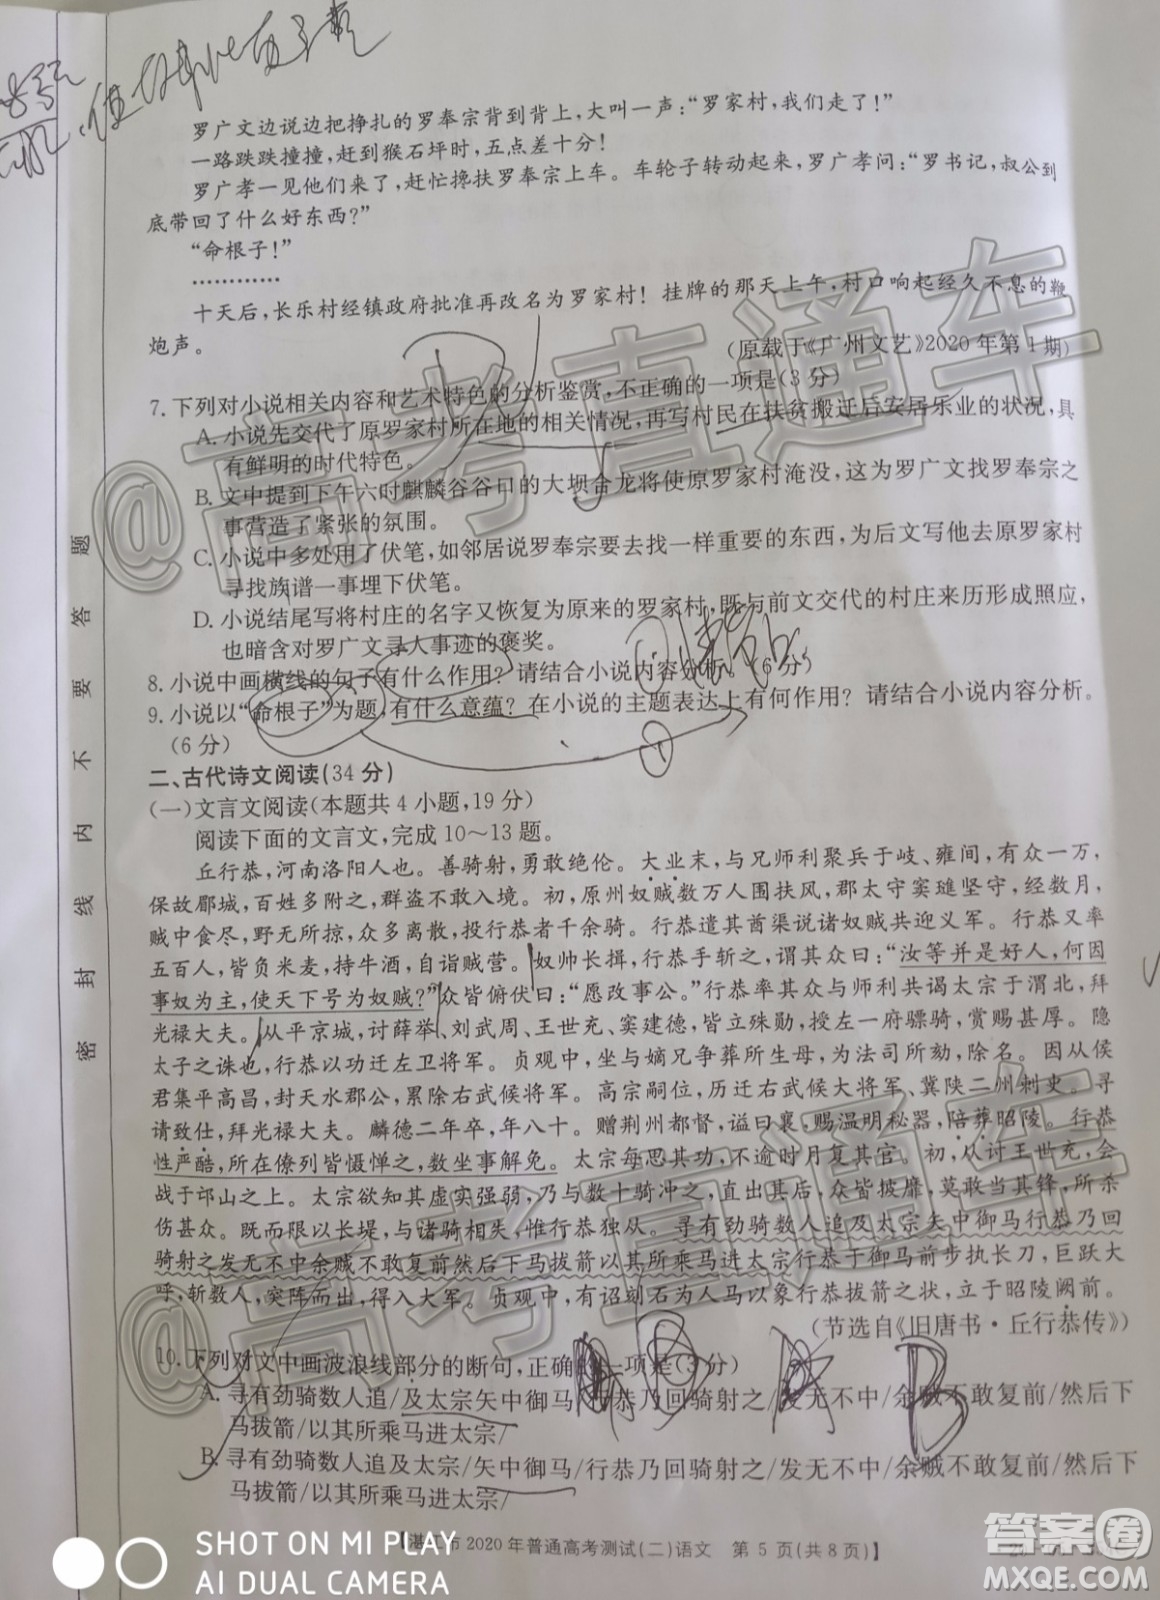 罗广文边说边把挣扎的罗奉宗背到背上,大叫一声:“罗家村,我们走了!”
一路跌跌撞撞,赶到猴石坪时,五点差十分!
罗广孝一见他们来了,赶忙搀扶罗奉宗上车。车轮子转动起来,罗广孝问:“罗书记,叔公到
底带回了什么好东西?”
“命根子!”
…………
十天后,长乐村经镇政府批准再改名为罗家村!挂牌的那天上午,村口响起经久不息的鞭
炮声。
(原载于《广州文艺》2020年第1期)
7.下列对小说相关内容和艺术特色的分析鉴赏,不正确的一项是(3分)
A.小说先交代了原罗家村所在地的相关情况,再写村民在扶贫搬迁后安居乐业的状况,具
有鲜明的时代特色。
B.文中提到下午六时麒麟谷谷口的大坝合龙将使原罗家村淹没,这为罗广文找罗奉宗之
事营造了紧张的氛围。
C.小说中多处用了伏笔,如邻居说罗奉宗要去找一样重要的东西,为后文写他去原罗家村
寻找族谱一事埋下伏笔。
D.小说结尾写将村庄的名字又恢复为原来的罗家村,既与前文交代的村庄来历形成照应,
也暗含对罗广文寻人事迹的褒奖。
8.小说中画横线的句子有什么作用?请结合小说内容分析。(6分)
9.小说以“命根子”为题,有什么意蕴?在小说的主题表达上有何作用?请结合小说内容分析。
(6分)
二、古代诗文阅读(34分)
(一)文言文阅读(本题共4小题,19分)
阅读下面的文言文,完成10～13题。
丘行恭,河南洛阳人也。善骑射,勇敢绝伦。大业末,与兄师利聚兵于岐、雍间,有众一万,
保故郿城,百姓多附之,群盗不敢入境。初,原州奴贼数万人围扶风,郡太守窦琎坚守,经数月,
贼中食尽,野无所掠,众多离散,投行恭者千余骑。行恭遣其酋渠说诸奴贼共迎义军。行恭又率
五百人,皆负米麦,持牛酒,自诣贼营。奴帅长揖,行恭手斩之,谓其众曰:“汝等并是好人,何因
事奴为主,使天下号为奴贼?”众皆俯伏曰:“愿改事公。”行恭率其众与师利共谒太宗于渭北,拜
光禄大夫。从平京城,讨薛举、刘武周、王世充、窦建德,皆立殊勋,授左一府骠骑,赏赐甚厚。隐
太子之诛也,行恭以功迁左卫将军。贞观中,坐与嫡兄争葬所生母,为法司所劾,除名。因从侯
君集平高昌,封天水郡公,累除右武候将军。高宗嗣位,历迁右武候大将军、冀陕二州刺史。寻
请致仕,拜光禄大夫。麟德二年卒,年八十。赠荆州都督,谥曰襄,赐温明秘器,陪葬昭陵。行恭
性严酷,所在僚列皆慑惮之,数坐事解免。太宗每思其功,不逾时月复其官。初,从讨王世充,会
战于邙山之上。太宗欲知其虚实强弱,乃与数十骑冲之,直出其后,众皆披靡,莫敢当其锋,所杀
伤甚众。既而限以长堤,与诸骑相失,惟行恭独从。寻有劲骑数人追及太宗矢中御马行恭乃回
骑射之发无不中余贼不敢复前然后下马拔箭以其所乘马进太宗行恭于御马前步执长刀,巨跃大
呼,斩数人,突阵而出,得入大军。贞观中,有诏刻石为人马以象行恭拔箭之状,立于昭陵阙前。
(节选自《旧唐书·丘行恭传》)
10.下列对文中画波浪线部分的断句,正确的一项是(3分)
A.寻有劲骑数人追/及太宗矢中御马/行恭乃回骑射之/发无不中/余贼不敢复前/然后下
马拔箭/以其所乘马进太宗/
B.寻有劲骑数人追及太宗/矢中御马/行恭乃回骑射之/发无不中/余贼不敢复前/然后下
马拔箭/以其所乘马进太宗/
【湛江市2020年普通高考测试(二)语文 第5页(共8页)】
密 封 线 内 不 要 答 题
B
@高考直通车
@高考直通车
SHOT ON MI PLAY
AI DUAL CAMERA
答案圈
MXQE.COM